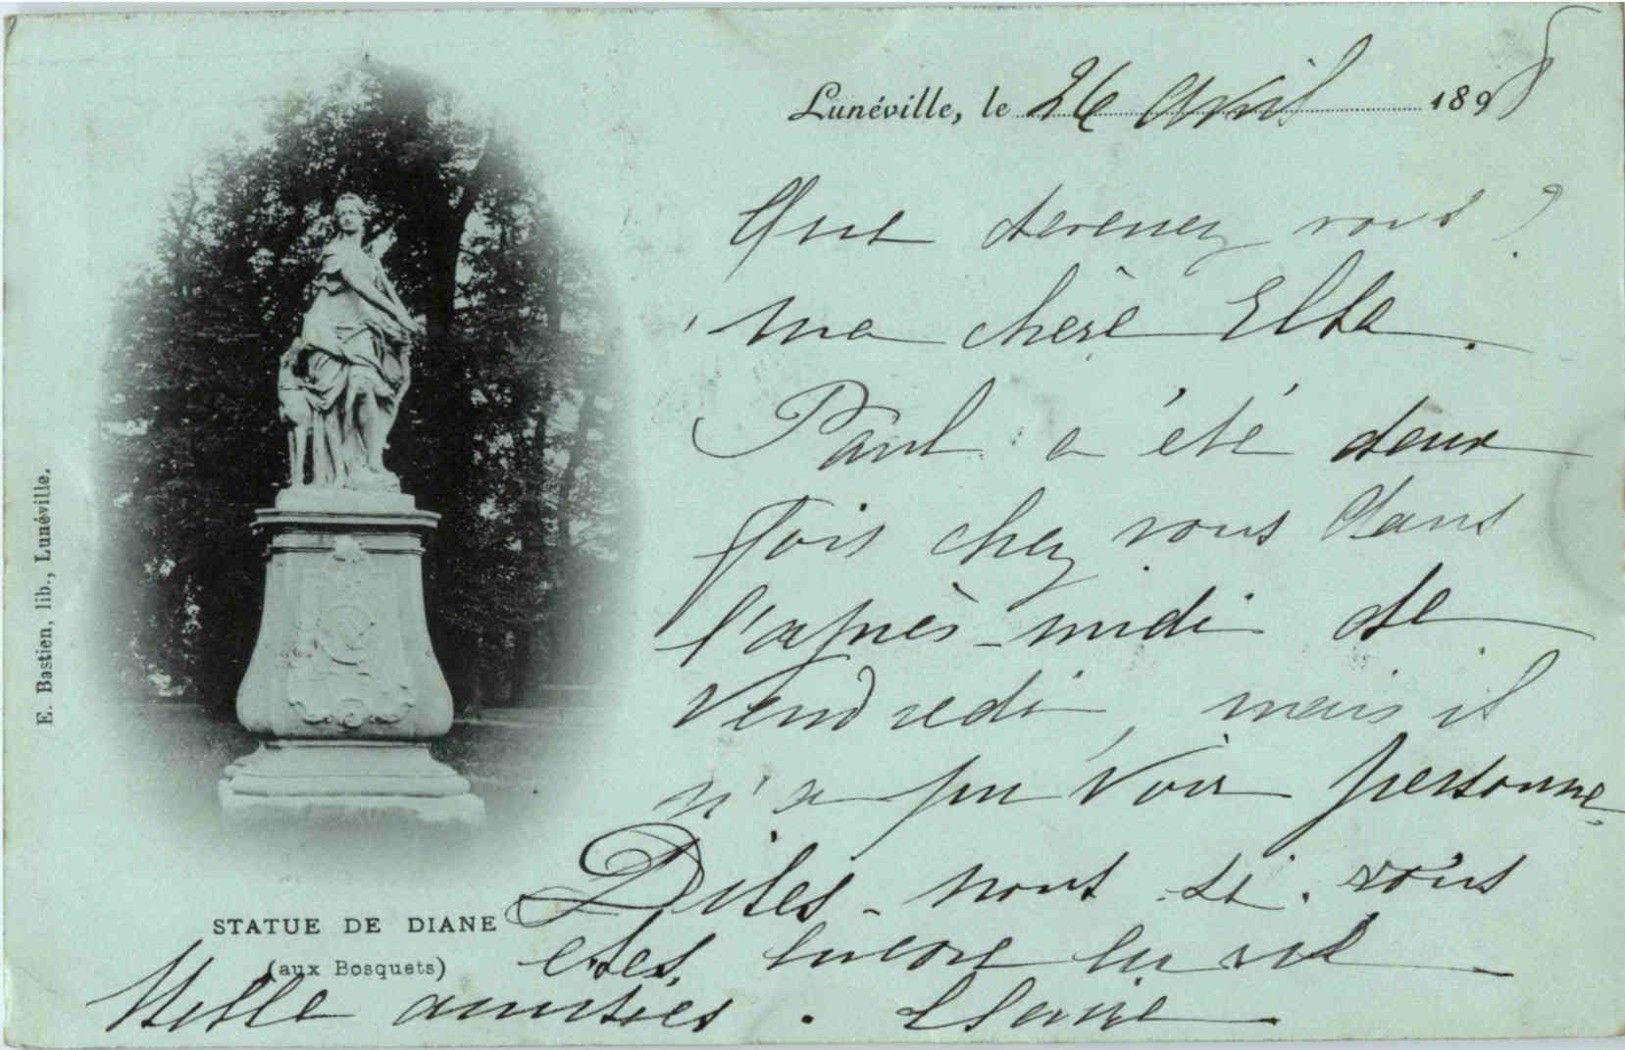 Lunéville, le 26 avril 1898
Que devenez vous ?
ma chère Elba.
Paul a été deux
fois chez vous dans
l'après-midi de
Vendredi, mais il
n'a pu voir personne,
Dites-nous si vous
etes encore en vie
Mille amitiés. Claire
STATUE DE DIANE
(aux Bosquets)
E. Bastien, lib., Lunéville.